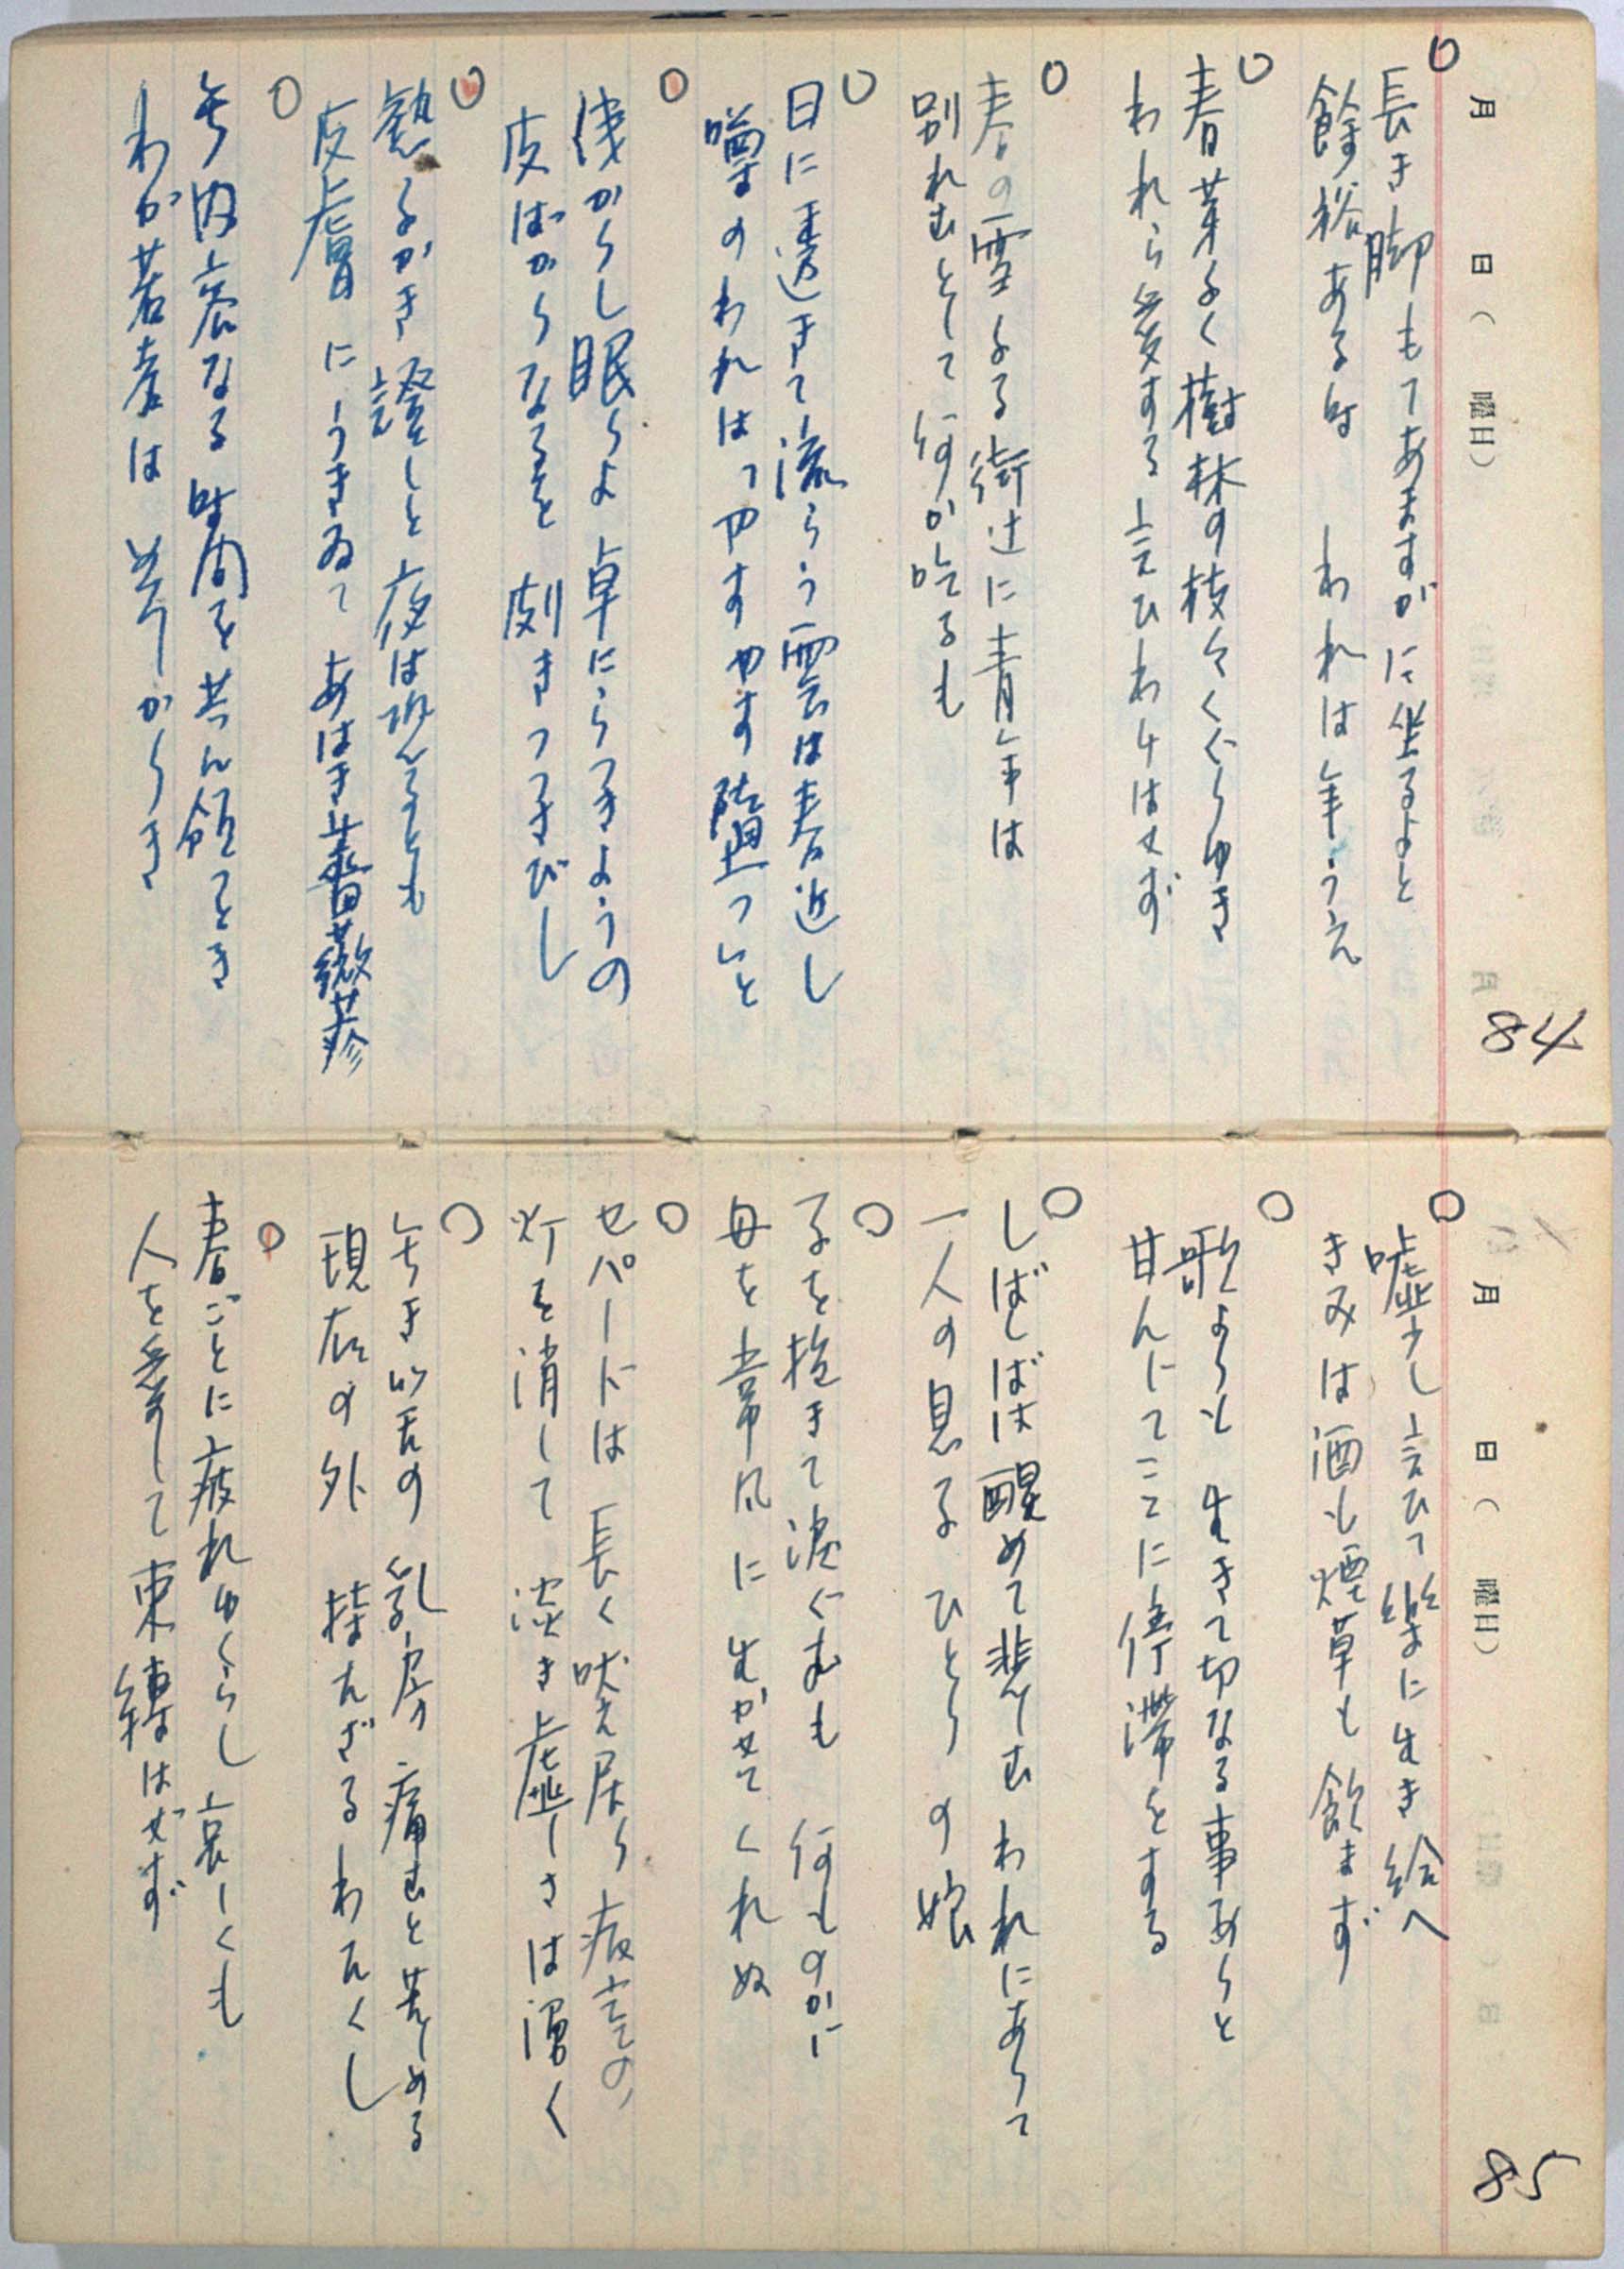 月 日( 曜日)
84
長き脚もてあますがに坐るよと
餘裕ある時 われは年うえ
春芽ふく樹林の枝々くぐりゆき
われら愛する言ひわけはせず
春の雪ふる街辻に青年は
別れむとして何か吃るも
日に透きて流らう雲は春近し
噂のわれはつやすやす堕つと
浅からし眠りよ卓にらつきようの
皮ばからなるを 剥きつつさびし
熱るかき證しと夜は恐るとも
皮膚にうきゐて あはき薔薇疹
内容なる時間を共ん領るとき
わが若さは 苦しからき
月 日( 曜日)
85
嘘少し言ひて樂に生き給へ
きみは酒も煙草も飲まず
歌よりも 生きて切なる事ありと
甘んじてここに停滞をする
しばしばは醒めて悲しむ われにありて
一人の息子 ひとりの娘
子を抱きて涙ぐむも 何ものかに
母を常凡に 生かせてくれぬ
セパードは 長く吠え居り 夜空の
灯を消して 淡き虚しさは湧く
年き以前の 乳房痛むと苦しめる
現在の外 持たざるわたくし
春ごとに疲れゆくらし哀しくも
人を愛して束縛はせず